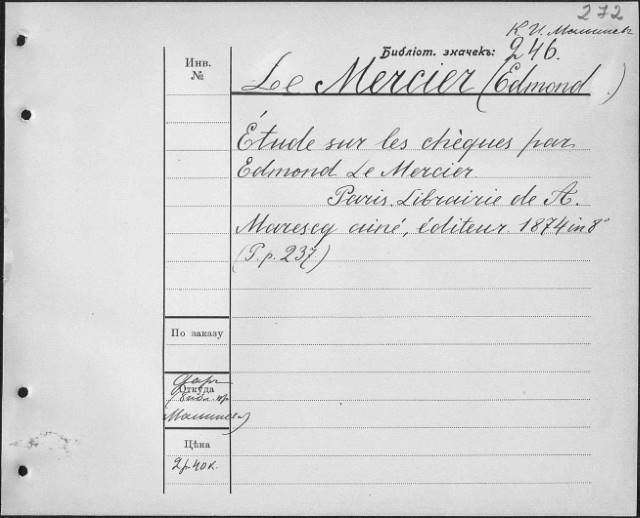 272
К. И. Малышевъ
Библіот. значекъ: 246.
Инв.
№
Le Mercier (Edmond.)
Étude sur les chèques par
Edmond Le Mercier.
Paris. Librairie de A.
Marescq ainé, éditeur. 1874 in 8°
(T. p. 237)
По заказу
Откуда
Малышев
Цѣна
2 р. 40 к.